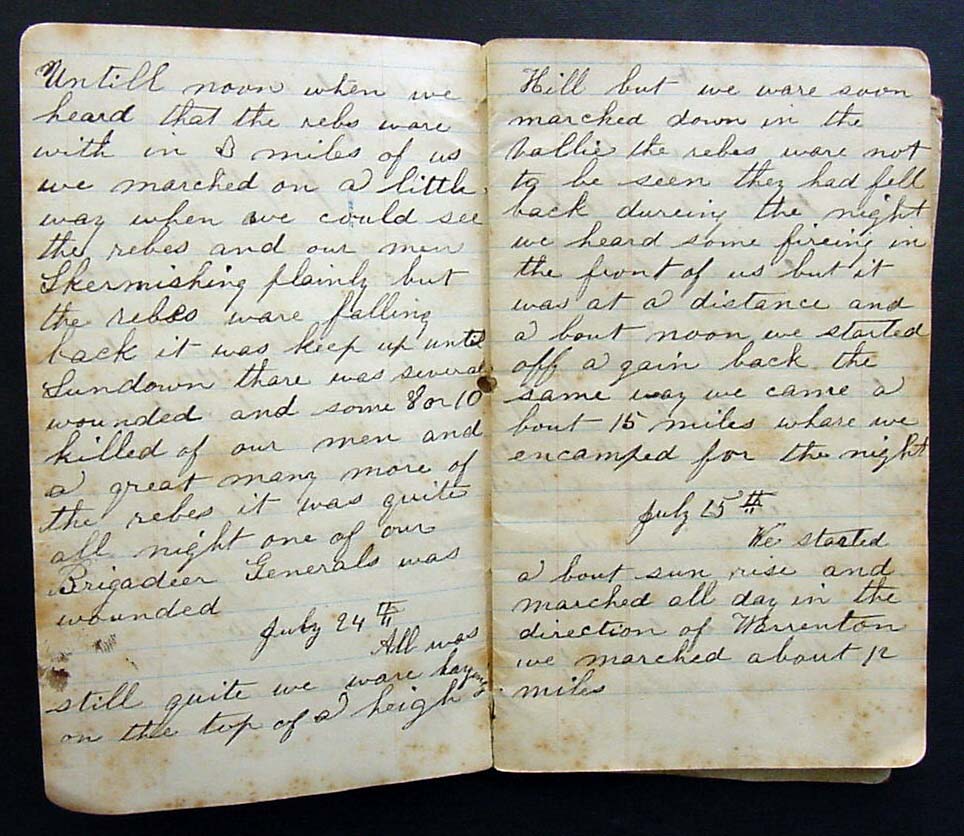 Untill noon when we
heard that the rebs ware
with in 3 miles of us
we marched on a little
way when we could see
the rebes and our men
Skermishing plainly but
the rebes ware falling
back it was keep up until
Sundown thare was several
wounded and some 8 or 10
killed of our men and
a great many more of
the rebes it was quite
all night one of our
Brigadeer Generals was
wounded
July 24th
All was
still quite we ware laying
on the top of a heigh
Hill but we ware soon
marched down in the
vallie the rebes ware not
to be seen they had fell
back dureing the night
we heard some fireing in
the front of us but it
was at a distance and
a bout noon we started
off a gain back the
same way we came a
bout 15 miles whare we
encamped for the night
July 25th
We started
a bout sun rise and
marched all day in the
direction of Warrenton
we marched about 12
miles